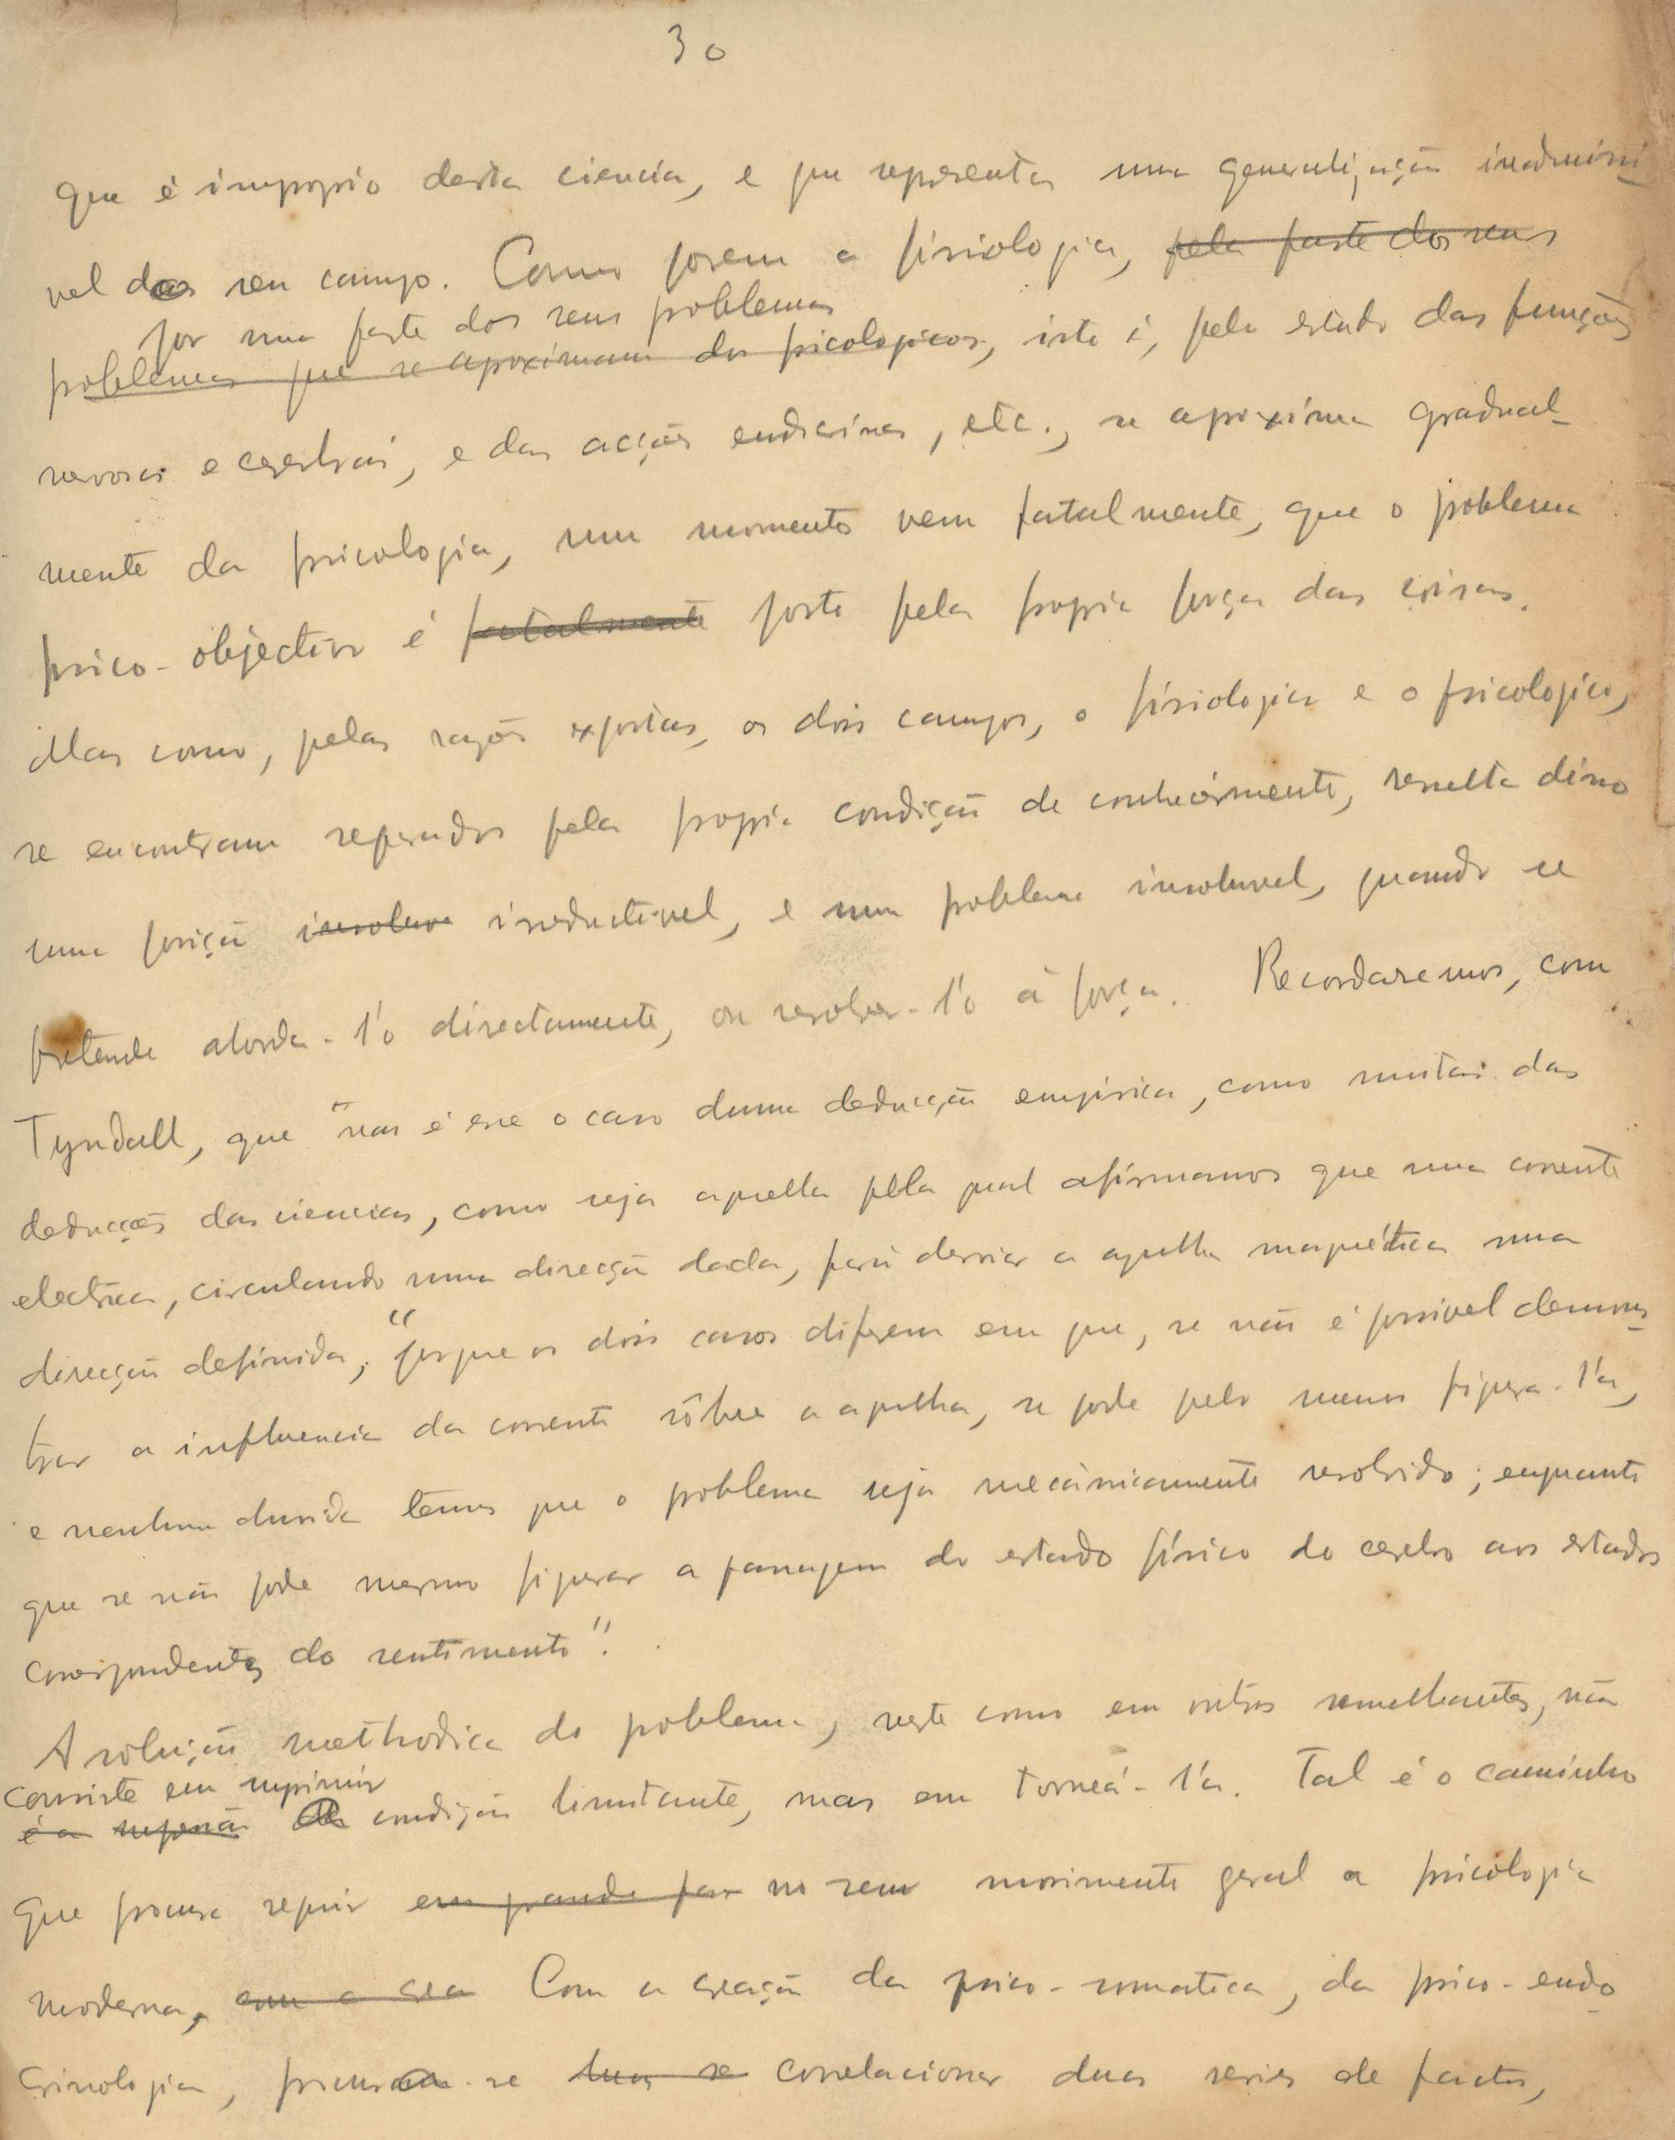 30
que é improprio desta ciencia, e que representa uma generalização inadmissi-
vel do seu campo. Como porem a fisiologia, pela parte dos seus
por uma parte dos seus problemas
problemas que se aproximam dos psicologicos, isto é, pelo estudo das funções
nervosas e cerebrais, e das acções endocrinas, etc., se aproxima gradual-
mente da psicologia, um momento vem fatalmente, que o problema
psico-objectivo é fatalmente posto pela propria força das coisas.
Mas como, pelas razões expostas, os dois campos, o fisiologico e o psicologico,
se encontram separados pela propria condição de conhecimento, resulta disso
uma posição insoluve irreductivel, e um problema insoluvel, quando se
pretende aborda-l'o directamente, ou resolver-l'o á força. Recordaremos, com
Tyndall, que "não é esse o caso duma deducção empirica, como muitas das
deducções das ciencias, como seja aquella pela qual afirmamos que uma corrente
electrica, circulando numa direcção dada, fará desviar a agulha magnética numa
direcção definida; "porque os dois casos diferem em que, se não é possivel demons-
trar a influencia da corrente sôbre a agulha, se pode pelo menos figura-l'a,
e nenhuma duvida temos que o problema seja mecânicamente resolvido; enquanto
que se não pode mesmo figurar a passagem do estado físico do cerebro aos estados
correspondentes do sentimento".
A solução methodica do problema, neste como em outros semelhantes, não
consiste em suprimir
é a supressão a condição limitante, mas em torneá-l'a. Tal é o caminho
que procura seguir em grande par no seu movimento geral a psicologia
moderna, com a crea Com a creação da psico-somatica, da psico-endo-
crinologia, procura-se correlacionar duas series de factos,